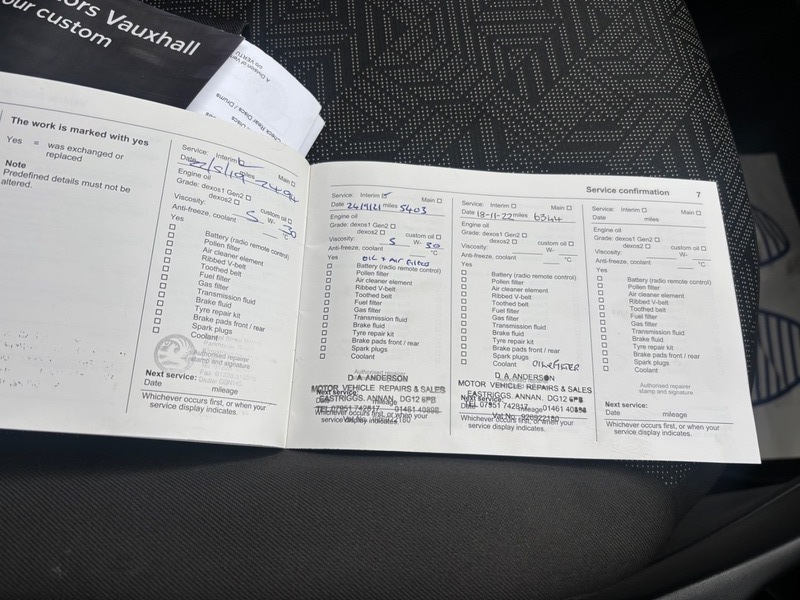 ors Vauxhall
our custom
A Division of Ver
c/o VERTU
Check Rear Discs / Drums
The work is marked with yes
Yes = was exchanged or
replaced
Note
Predefined details must not be
altered.
Service: Interim Main
Date 22/5/19
Engine oil
Grade: dexos1 Gen2
dexos2 custom oil
Viscosity: 5 W- 30
Anti-freeze, coolant °C
Yes
Battery (radio remote control)
Pollen filter
Air cleaner element
Ribbed V-belt
Toothed belt
Fuel filter
Gas filter
Transmission fluid
Brake fluid
Tyre repair kit
Brake pads front / rear
Spark plugs
Coolant
Authorised repairer
stamp and signature
Next service:
Date mileage
Whichever occurs first, or when your
service display indicates.
Service: Interim Main
Date 24/9/21 miles 5403
Engine oil
Grade: dexos1 Gen2
dexos2 custom oil
Viscosity: 5 W- 30
Anti-freeze, coolant °C
Yes OIL + AIR Filted
Battery (radio remote control)
Pollen filter
Air cleaner element
Ribbed V-belt
Toothed belt
Fuel filter
Gas filter
Transmission fluid
Brake fluid
Tyre repair kit
Brake pads front / rear
Spark plugs
Coolant
Authorised repairer
D A ANDERSON
MOTOR VEHICLE REPAIRS & SALES
Next service:
EASTRIGGS. ANNAN. DG12 6PB
Date mileage
TEL 07851 742817 01461 40898
Whichever occurs first, or when your
service display indicates.
Service confirmation 7
Service: Interim Main
Date 18-11-22 miles 6344
Engine oil
Grade: dexos1 Gen2
dexos2 custom oil
Viscosity: W-
Anti-freeze, coolant °C
Yes
Battery (radio remote control)
Pollen filter
Air cleaner element
Ribbed V-belt
Toothed belt
Fuel filter
Gas filter
Transmission fluid
Brake fluid
Tyre repair kit
Brake pads front / rear
Spark plugs
Coolant
D A ANDERSON
MOTOR VEHICLE REPAIRS & SALES
Next service:
EASTRIGGS. ANNAN. DG12 6PB
Date mileage
TEL 07851 742817 01461 40898
Whichever occurs first, or when your
Vat No. 926922180
service display indicates.
Service: Interim Main
Date miles
Engine oil
Grade: dexos1 Gen2
dexos2 custom oil
Viscosity: W-
Anti-freeze, coolant °C
Yes
Battery (radio remote control)
Pollen filter
Air cleaner element
Ribbed V-belt
Toothed belt
Fuel filter
Gas filter
Transmission fluid
Brake fluid
Tyre repair kit
Brake pads front / rear
Spark plugs
Coolant
Authorised repairer
stamp and signature
Next service:
Date mileage
Whichever occurs first, or when your
service display indicates.